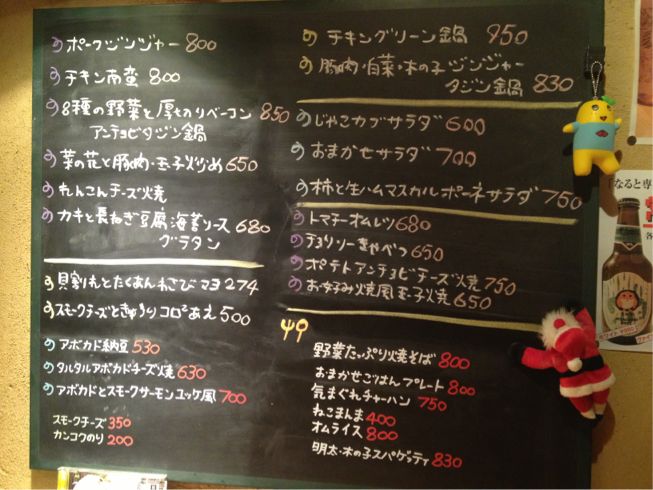 ポークジンジャー 800
チキン南蛮 800
8種の野菜と厚切りベーコン 850
アンチョビタジン鍋
菜の花と豚肉・玉子炒め 650
れんこんチーズ焼
カキと長ねぎ豆腐海苔ソース 680
グラタン
貝割れとたくあんわさびマヨ 274
スモークチーズときゅうりコロコロあえ 500
アボカド納豆 530
タルタルアボカドチーズ焼 630
アボカドとスモークサーモンユッケ風 700
スモークチーズ 350
カンコクのり 200
チキングリーン鍋 950
豚肉・白菜・木の子ジンジャー
タジン鍋 830
じゃこカブサラダ 600
おまかせサラダ 700
柿と生ハムマスカルポーネサラダ 750
トマチーオムレツ 680
チョリソーきゃべつ 650
ポテトアンチョビチーズ焼 750
お好み焼風玉子焼 650
野菜たっぷり焼そば 800
おまかせごはんプレート 800
気まぐれチャーハン 750
ねこまんま 400
オムライス 800
明太・木の子スパゲッティ 830
「なると専